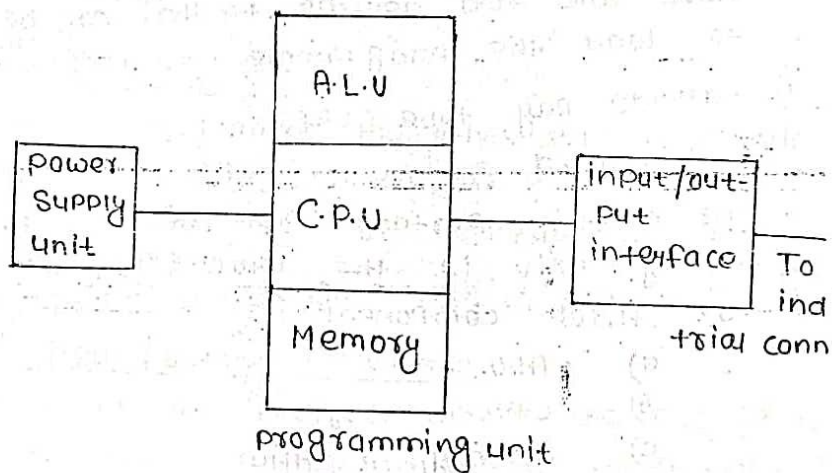 A.L.U
power
supply
unit
C.P.U
input/out-
put
interface
To
ind
trial conn
Memory
programming unit